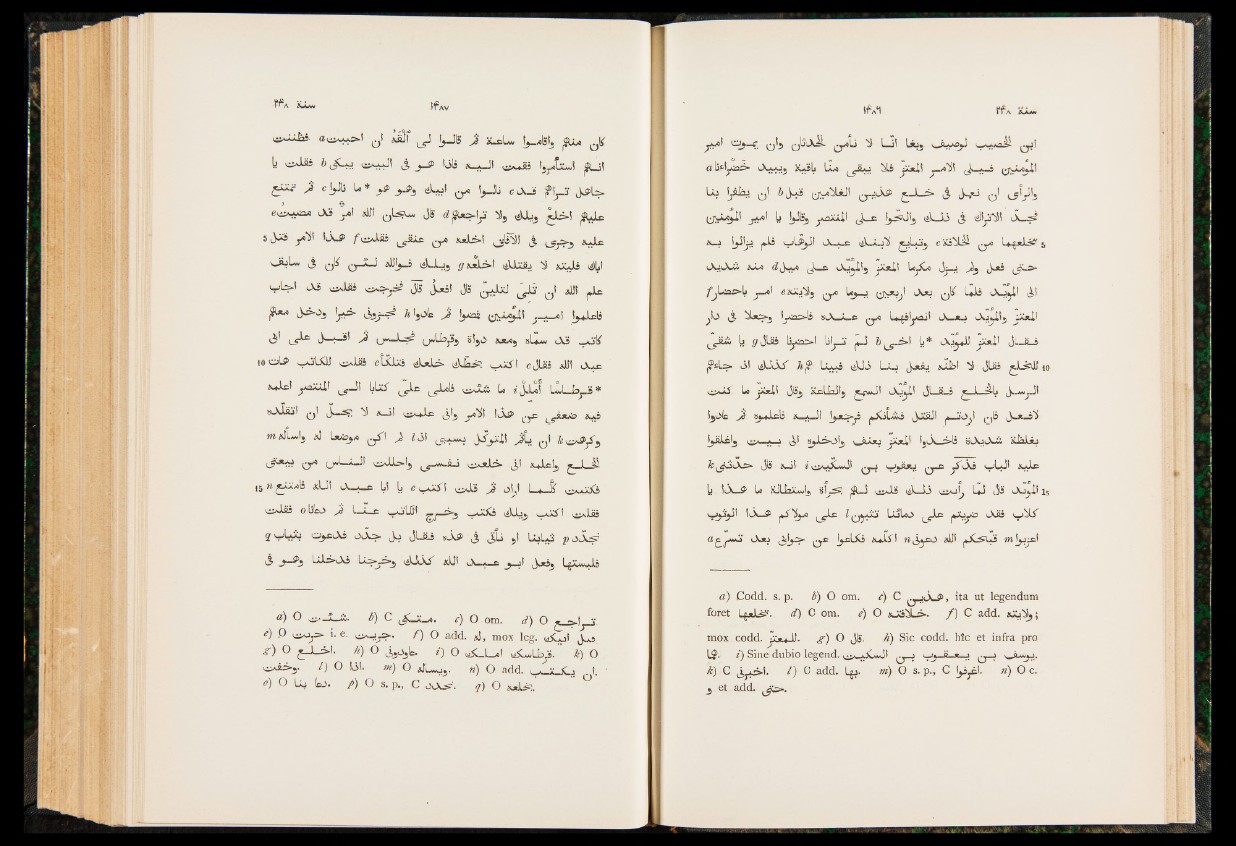 سنة ٢٤٨ ١٤٨٦
ابن للخصيب لوصيف وبغا انّا لا نأمن للحدثان وان يموت امير
المؤمنين فيلى الامر المعتزّ فلا يبقى منّا باقية ويبيد خضراءنا a
والرأى ان نعمل فى خلع هذين الغلامين قبل b ان يظفرا بنا
فجدّ الاتراك فى ذلك والحّوا على المنتصر وقالوا يا امير المؤمنين
5 تخلعهما من للخلافة c وتبايع لابنك عبد الوهّاب فلم يزالوا به
حتى فعل ولم يزل مكرما المعتزّ والمؤيّد على ميل d منه شديد
الى المؤيّد فلمّا كان بعد اربعين يوما من ولايته e امر باحضار f
المعتزّ والمؤيّد بعد انصرافهما من عنده فاحضرا وجعلا فى دار
فقال المعتزّ للمؤيّد *يا اخى b لِمَ ترانا احضرنا g فقال يا شقىّ
10 للخلع فقال لا اظنّه يفعل بنا ذلك فبينا هم h كذلك اذ جاءهم
الرسل بالخلع فقال المؤيّد السمع والطاعة وقال المعتزّ ما كنت
لافعل فان اردتم القتل فشأنكم فرجعوا اليه فاعلموه ثم عادوا
بغلظة شديدة فاخذوا المعتزّ بعنف وادخلوه الى بيت واغلقوا
عليه الباب فذُكر عن يعقوب بن السكّيت i انه قال حدثنى k
15 المؤيّد قال لمّا رأيت ذلك قلت لهم بجرأة واستطالة ما هذا يا
كلاب فقد ضريتم على دمائنا تثبون l على مولاكم هذا الوثوب
اعزبوا m قبّحكم الله دعونى n اكلّمه فكاعوا عن جوابى بعد تسرّع a
a) Codd. s. p. b) O om. c) C هذين, ita ut legendum
foret تخلعها. d) C om. e) O خلافته. f) C add. ولايته;
mox codd. للمعتز. g) O قال. h) Sic codd. hîc et infra pro
هما. i) Sine dubio legend. يوسف بن يعقوب بن السكيت.
k) C اخبرنى. l) C add. بها. m) O s. p., C اغرفوا. n) O c.
و et add. حتى.
سنة ٢٤٨ ١٤٨٧
كان منهم واقاموا ساعة ثم قالوا لى آلْقَهُ ان احببت a فظننت
انهم استأمروا فقمت اليه فاذا هو فى البيت يبكى b فقلت يا
جاهل تراهم قد c نالوا من ابيك وهو هو *ما نالوا c ثم تمتنع
عليهم اخلع ويلك ولا تراجعهم d قال سبحان الله امر قد مضيت e
5 عليه وجرى فى الآفاق اخلعه من عنقى فقلت f هذا الامر قتل
اباك فليته لا يقتلك اخلعه g ويلك فوالله لئن كان فى سابق
علم الله ان تلى لتلين قال افعل قال فخرجت فقلت قد اجاب
فاعلموا امير المؤمنين فمضوا ثم عادوا h فجزونى خيرا ودخل معهم
كاتب قد سمّاه ومعه دواة وقرطاس فجلس ثم اقبل على ابى
10 عبد الله فقال c اكتب بخطّك خلعك فتلكّأ c فقلت للكاتب هات
*قرطاسا أَمْلِلْ i ما شئت فاملى علىّ كتابا الى المنتصر اعلمه
فيه ضعفى عن هذا الامر وانى علمت انه لا يحلّ ان اتقلّده
وكرهت k ان يأثم المتوكّل بسببى اذ l لم اكن موضعا له واسأله m
للخلع واعلمه انى خلعت نفسى واحللت الناس من بيعتى
15 فكتبت كلّما اراد ثم قلت اكتب c يا ابا عبد الله فامتنع n
فقلت اكتب ويلك فكتب وخرج الكاتب عنّا ثم دعانا o فقلت
نجدّد p ثيابنا او نأتى فى هذه فقال بل جدّدا فدعوت بثياب q
فلبستها وفعل ابو عبد الله كذلك وخرجنا فدخلنا وهو فى
d) O تراجع c) O om.
e) O i. e. f) O add. له, mox leg. ابيك قبل
g) O اخلع. h) O i) O k) O
وخفت. l) O اذا. m) O ويسأله. n) O add. ان يكتب.
o) O دعا بنا. p) O s. p., C q) O بخلعه.